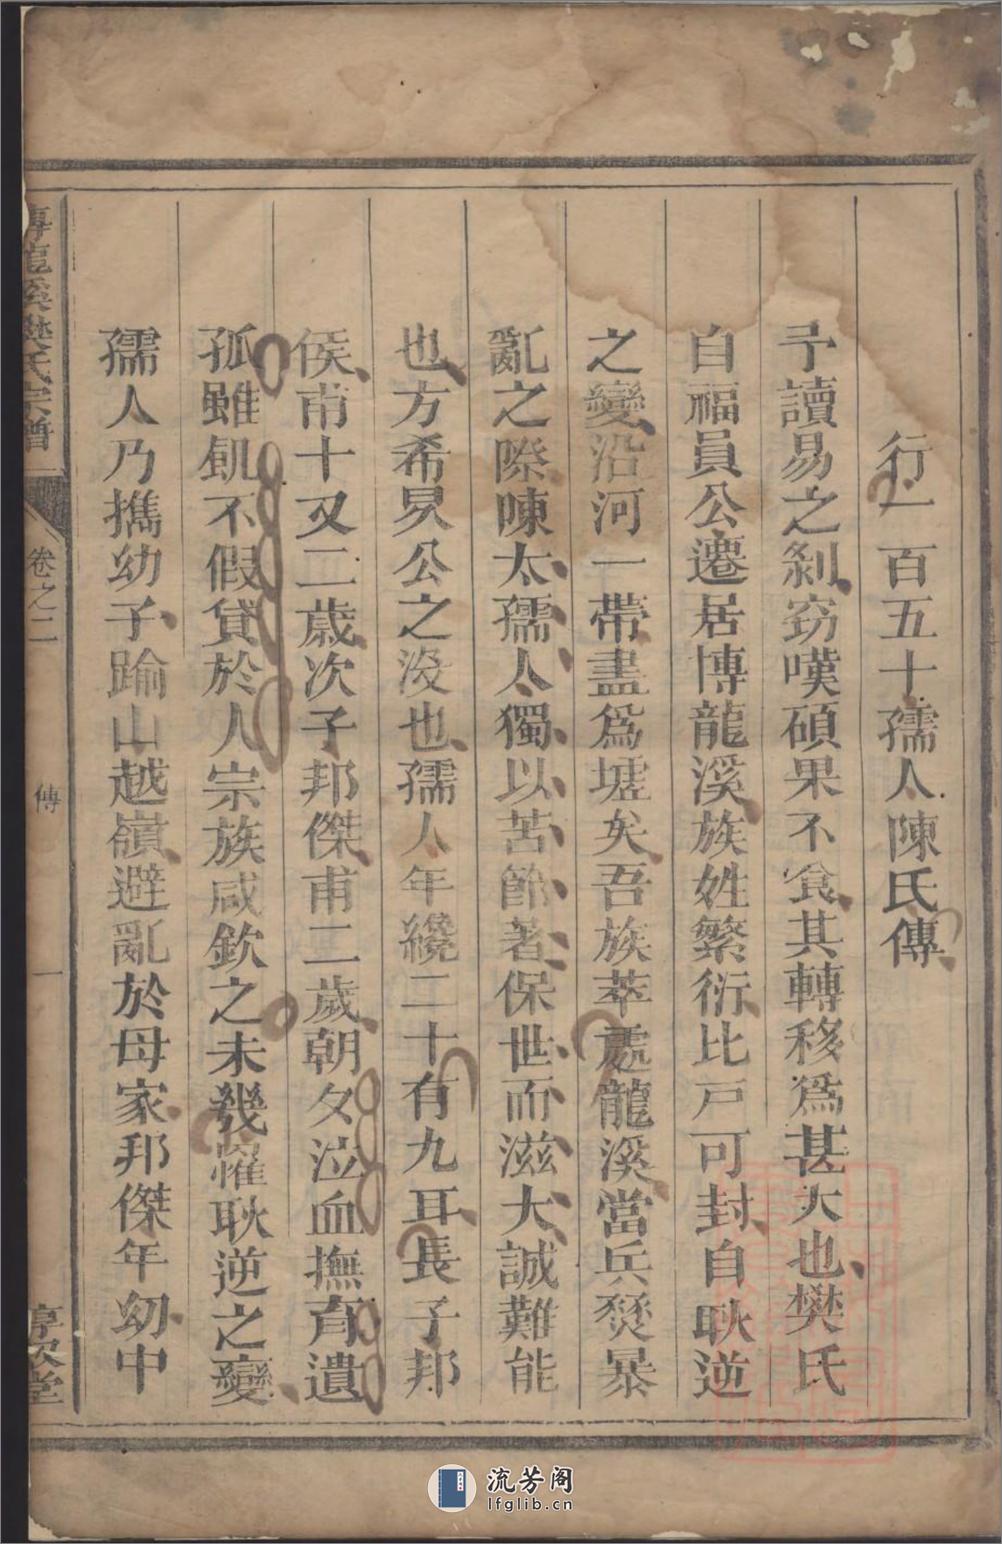 行一百五十孺人陳氏傳
予讀易之剝窃嘆碩果不食其轉移爲甚大也樊氏
自福員公遷居博龍溪族姓繁衍比戸可封自耿逆
之變沿河一帶盡爲墟矣吾族萃處龍溪當兵燹暴
亂之際陳太孺人獨以苦節著保世而滋大誠難能
也方希炅公之沒也孺人年纔二十有九耳長子邦
侯甫十又二歲次子邦傑甫二歲朝夕泣血撫育遺
孤雖飢不假貸於人宗族咸欽之未幾罹耿逆之變
孺人乃攜幼子踰山越嶺避亂於母家邦傑年幼中
博龍溪樊氏宗譜
卷之二
傳
一
惇敘堂
流芳阁
lfglib.cn